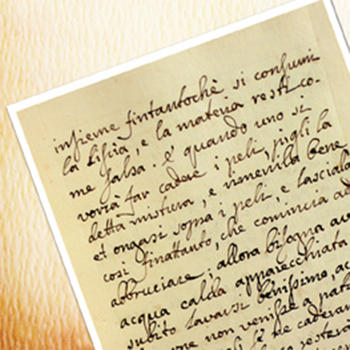 insieme fintantochè si consumi
la lisiia, e la materia resti co-
me salsa. e quando uno si
vorrà far cadere i peli, pigli la
detta mistura, e rimenilla bene
et ongasi sopra i peli, e lascial
così finattanto, che comincia ad
abbruciare; allora bisogna av
acqua calda apparecchiata
subito lavarsi benissimo, ac
non venisse a pat
se ne cadera